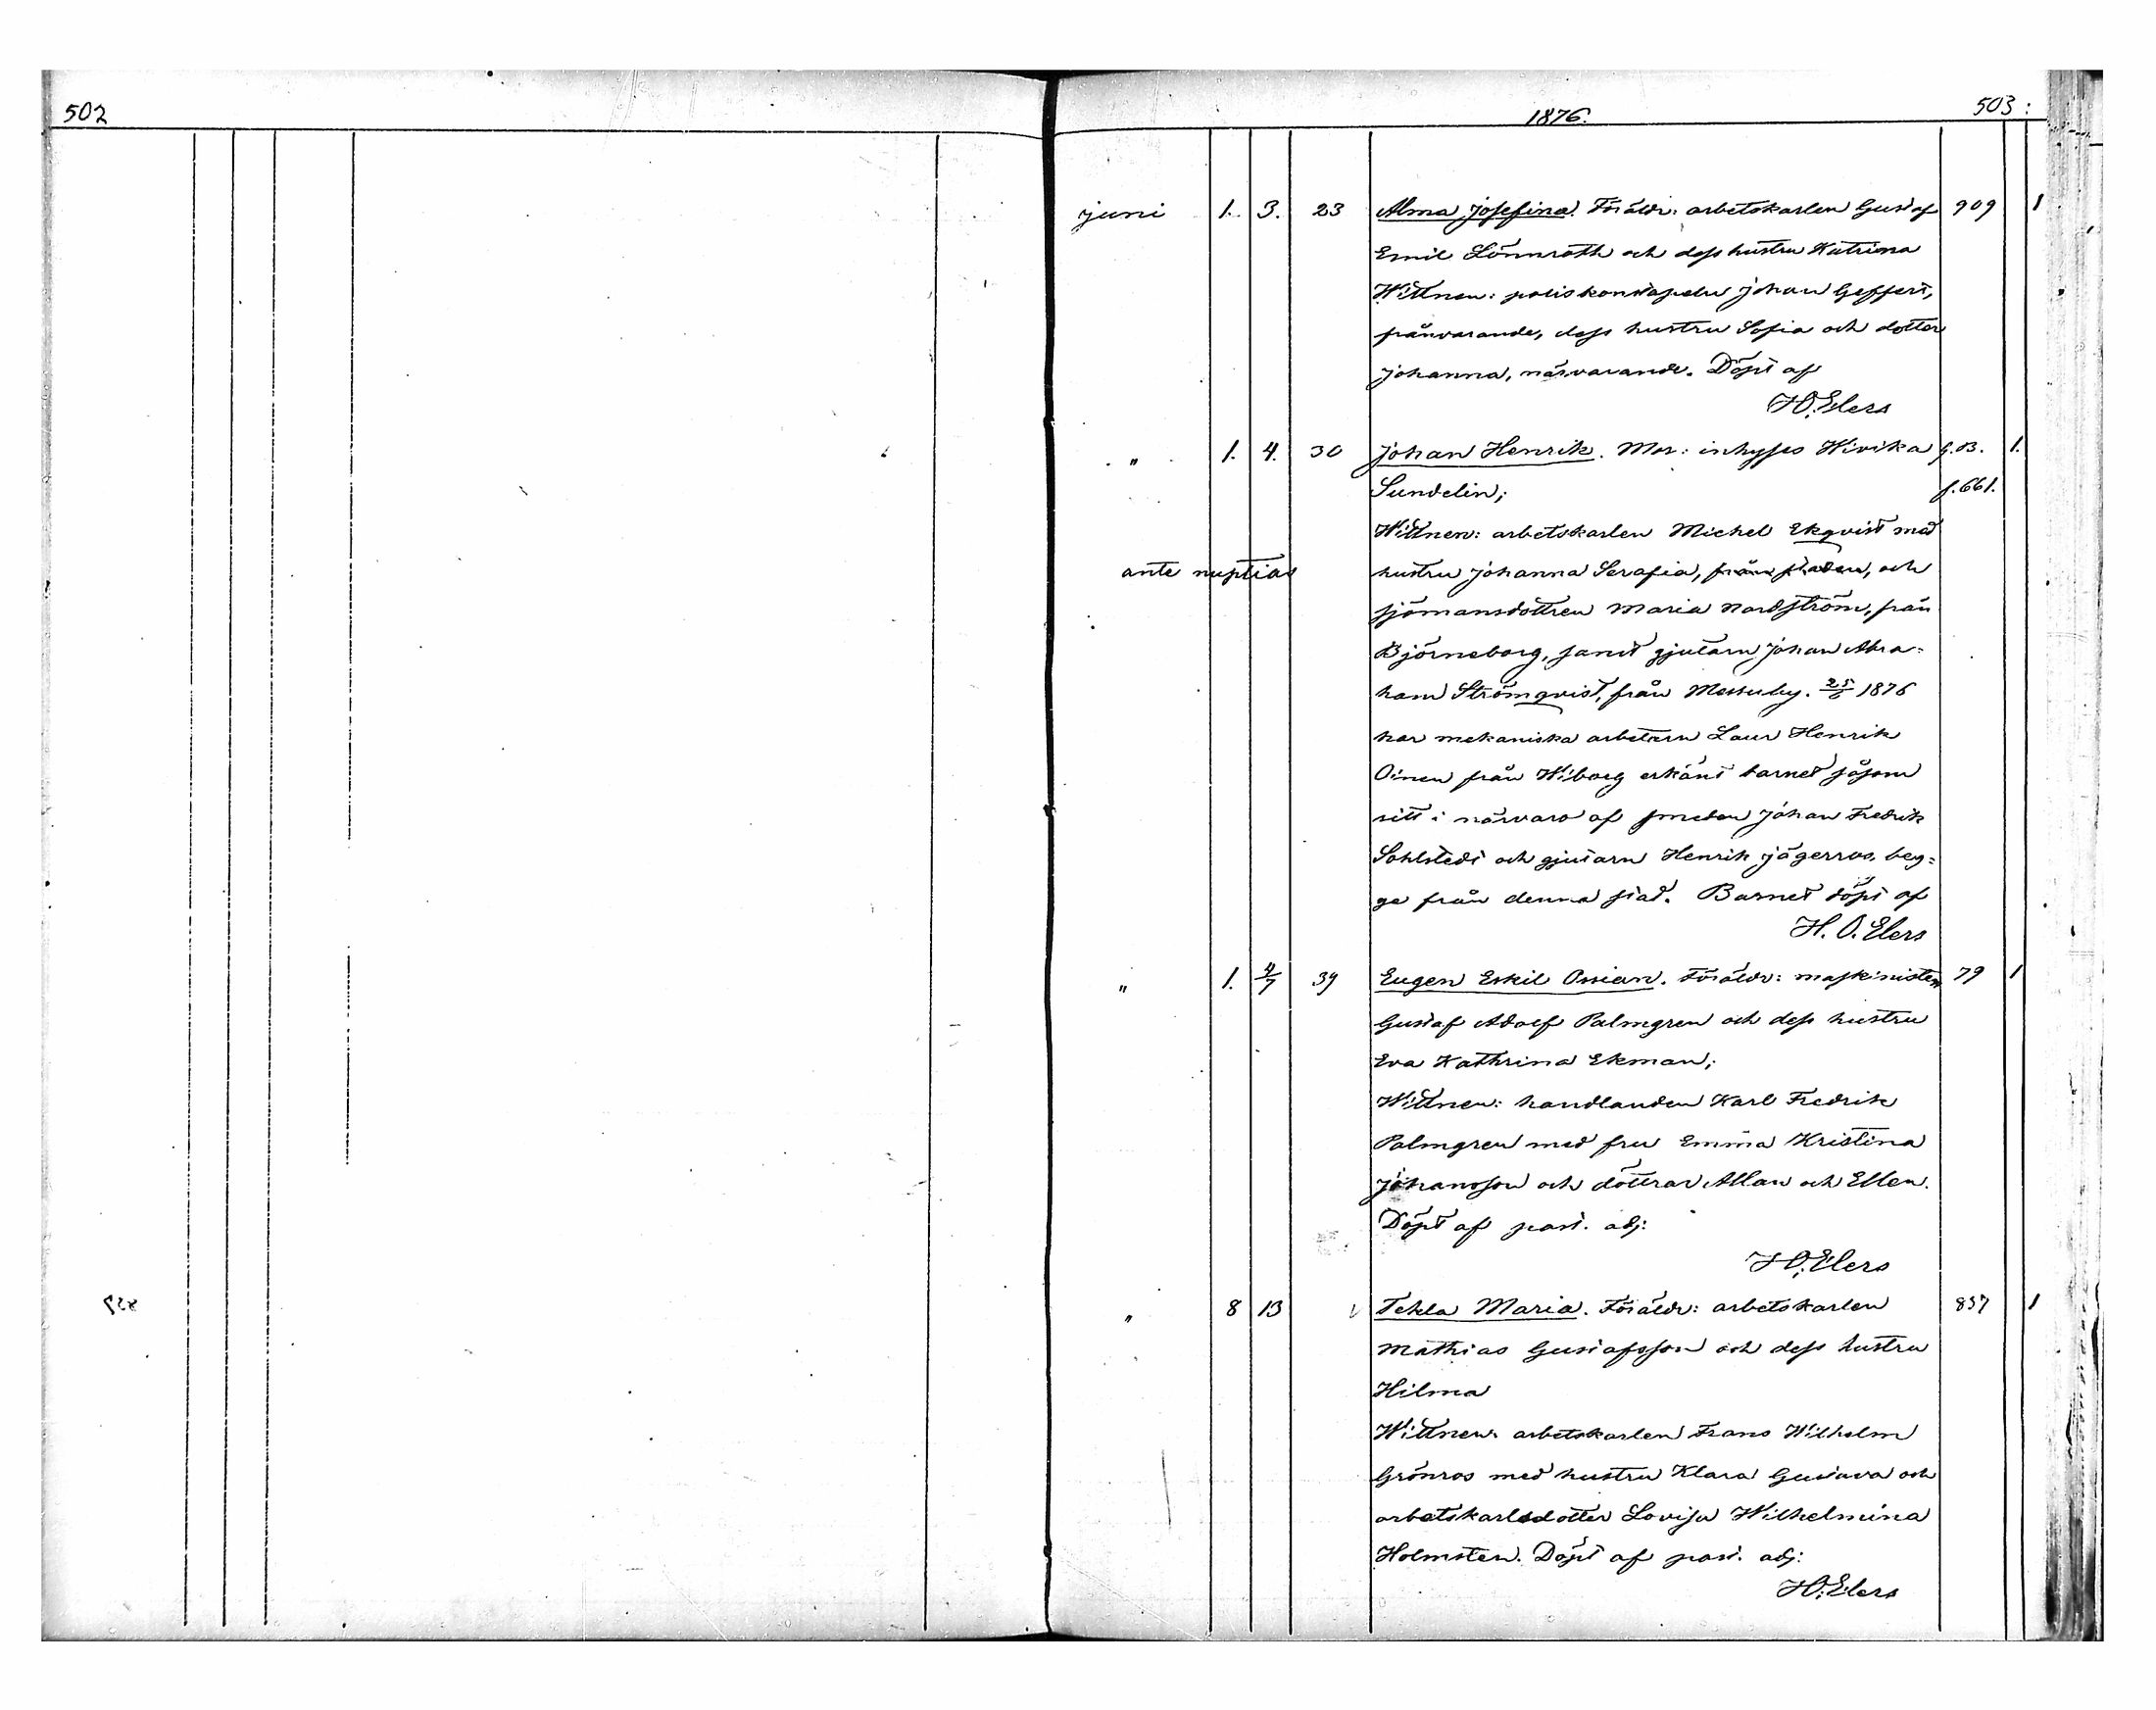 502
1876.
503
juni 1. 3. 23 Alma Josefina. Föräldr: arbetskarlen Gustaf 909 1
Emil Lönnroth och dess hustru Katrina
Wittnen: poliskonstapeln Johan Geffert,
frånvarande, dess hustru Sofia och dotter
Johanna, närvarande. Döpt af
H.O. Elers
" 1. 4. 30 Johan Henrik. Mor: inhyses Wivika G.B. 1.
Sundelin; f. 661.
Wittnen: arbetskarlen Michel Ekqvist med
ante nuptias hustru Johanna Serafia, från staden, och
sjömansdottren Maria Nordström, från
Björneborg, samt gjutarn Johan Abra-
ham Strömqvist, från Messuby. 25/6 1876
har mekaniska arbetarn Laur Henrik
Oinen från Wiborg erkänt barnet såsom
sitt i närvaro af smeden Johan Fredrik
Sohlstedt och gjutarn Henrik Jägerroos, beg-
ge från denna stad. Barnet döpt af
H. O. Elers
" 1. 4/7 39 Eugen Eskil Ossian. Föräldr: maskinisten 79 1
Gustaf Adolf Palmgren och dess hustru
Eva Kathrina Ekman;
Wittnen: handlanden Karl Fredrik
Palmgren med fru Emma Kristina
Johansson och döttrar Allan och Ellen.
Döpt af past. adj:
H.O. Elers
" 8 13 Tekla Maria. Föräldr: arbetskarlen 857 1
Mathias Gustafsson och dess hustru
Hilma
Wittnen: arbetskarlen Frans Wilhelm
Grönros med hustru Klara Gustava och
arbetskarlsdotter Lovisa Wilhelmina
Holmsten. Döpt af past. adj:
H.O. Elers